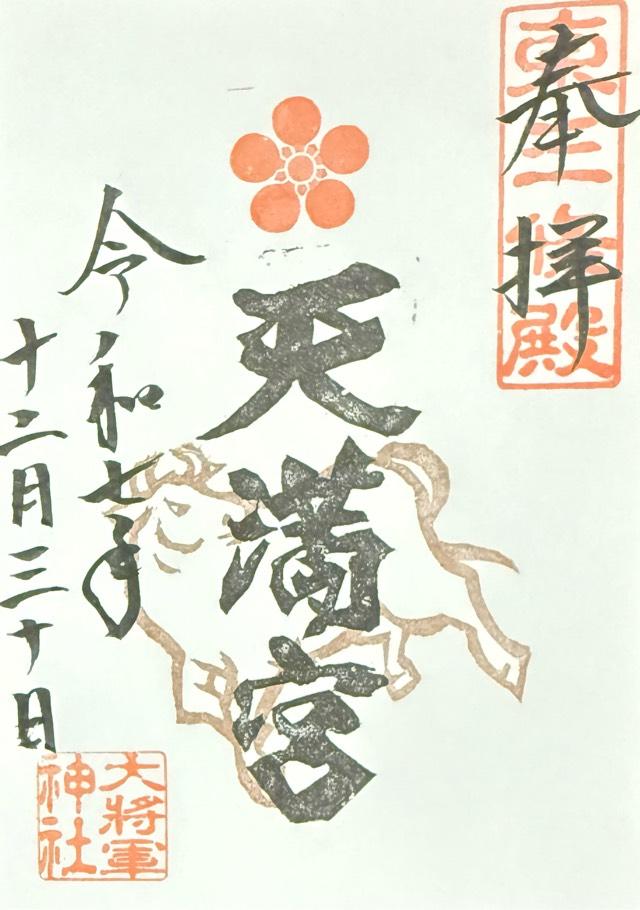 奉拝
東三條殿
天満宮
令和七年
十二月三十日
大将軍
神社